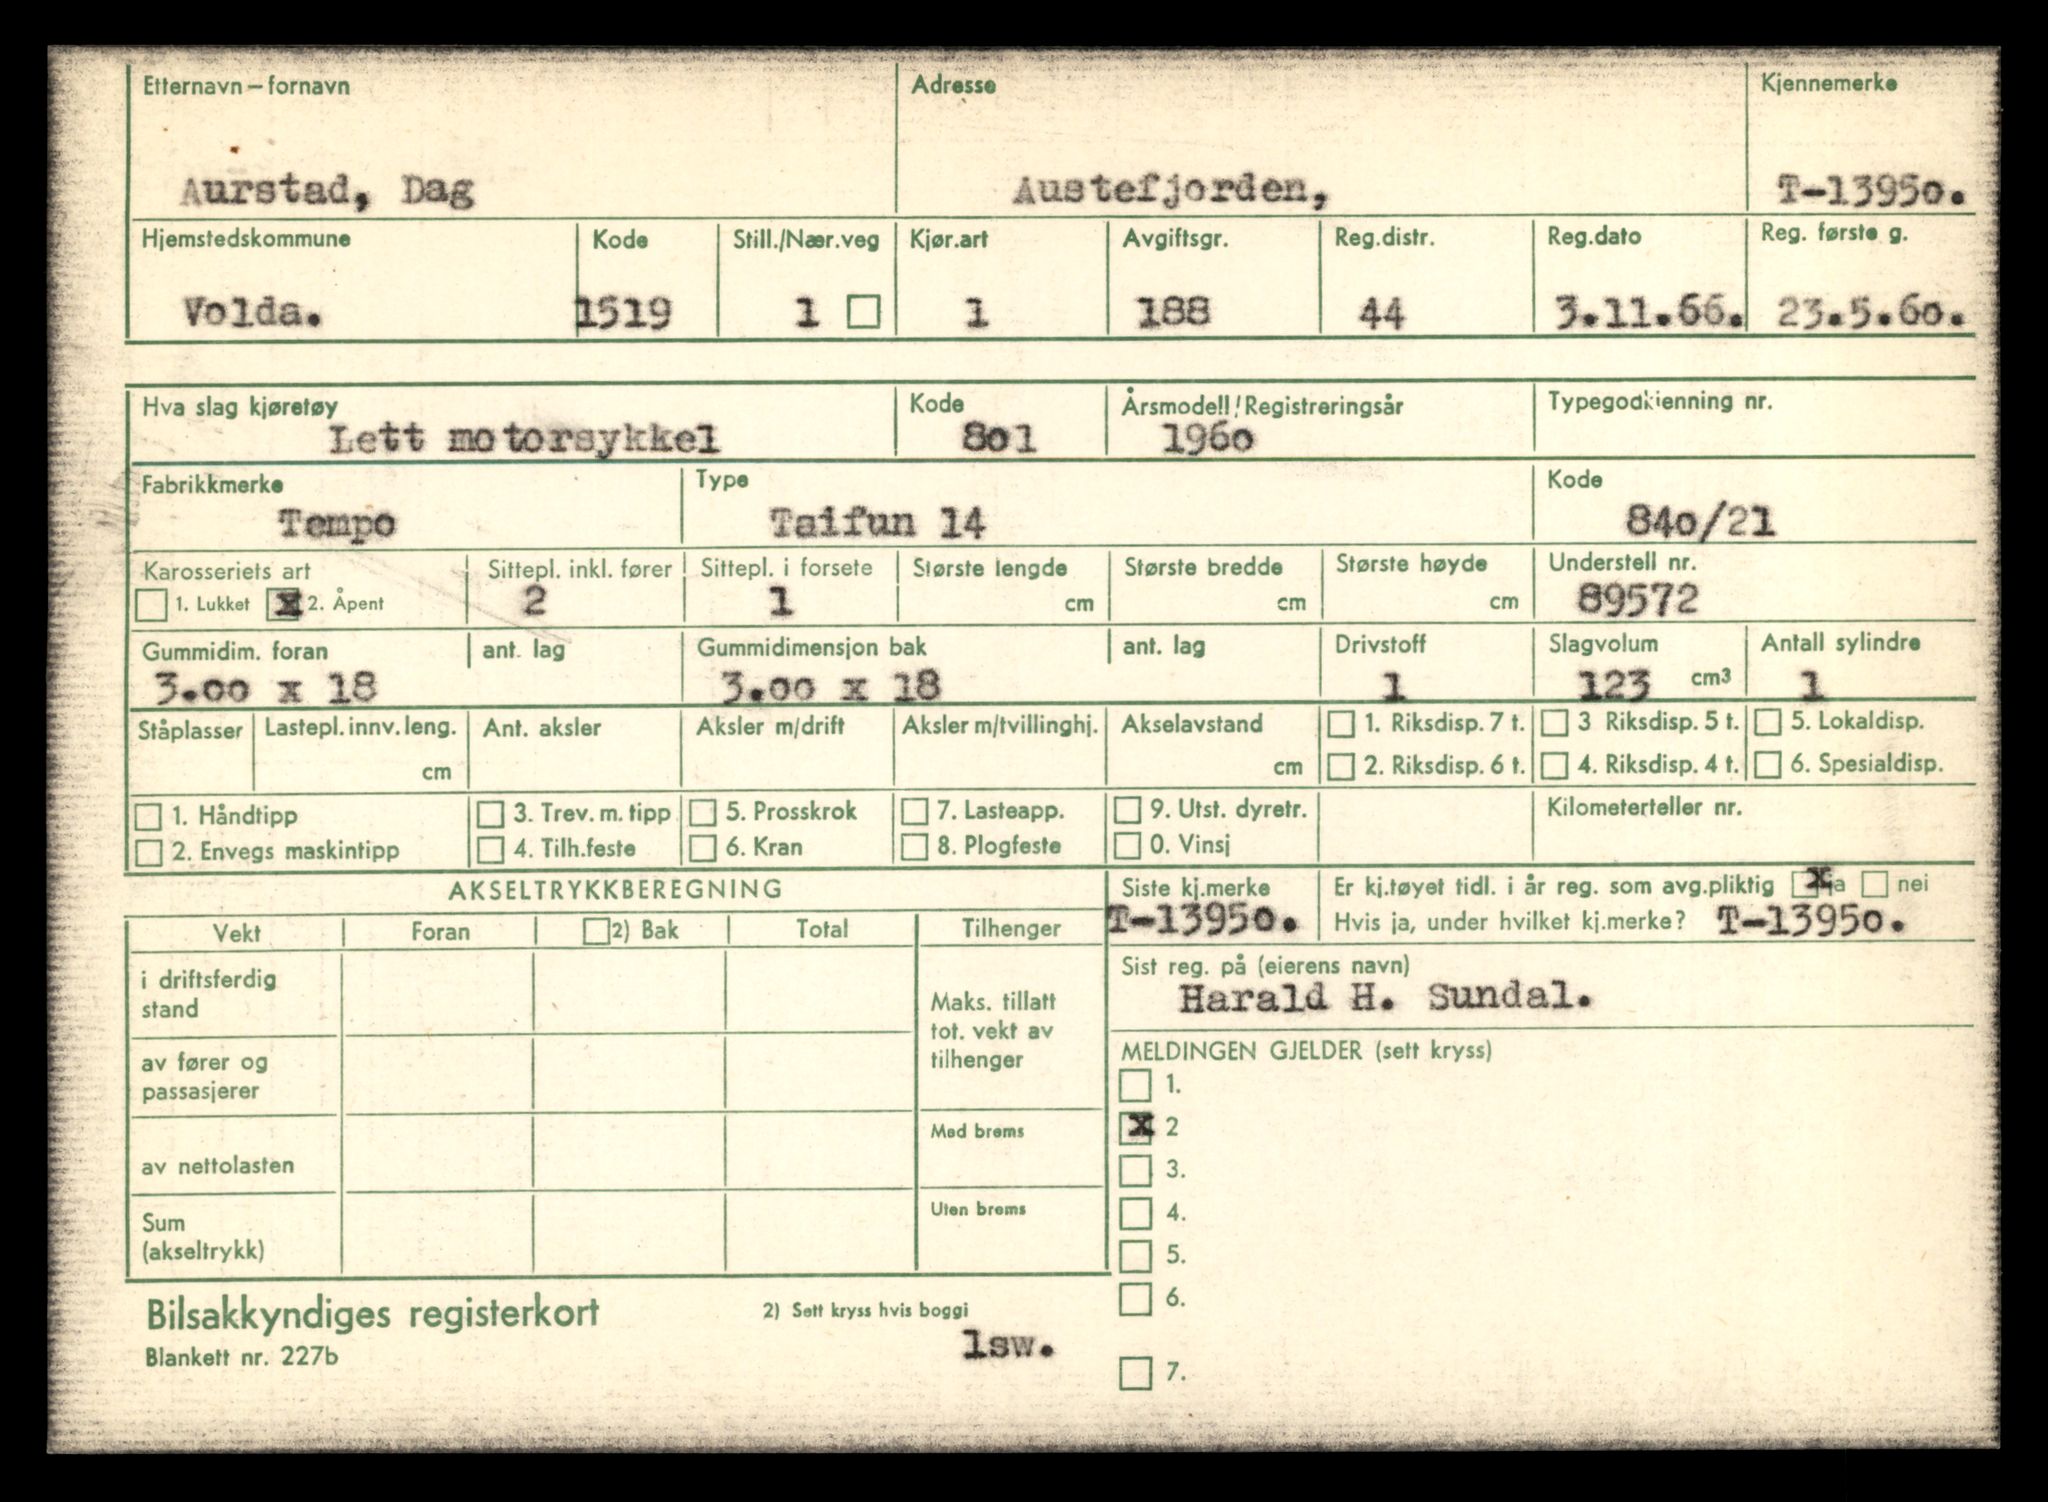 Etternavn – fornavn Adresse Kjennemerke
Aurstad, Dag Austefjorden, T-13950.
Hjemstedskommune Kode Still./Nær.veg Kjør.art Avgiftsgr. Reg.distr. Reg.dato Reg. første g.
Volda. 1519 1 1 188 44 3.11.66. 23.5.60.
Hva slag kjøretøy Kode Årsmodell/Registreringsår Typegodkjenning nr.
Lett motorsykkel 801 1960
Fabrikkmerke Type Kode
Tempo Taifun 14 840/21
Karosseriets art Sittepl. inkl. fører Sittepl. i forsete Største lengde Største bredde Største høyde Understell nr.
1. Lukket x 2. Åpent 2 1 cm cm cm 89572
Gummidim. foran ant. lag Gummidimensjon bak ant. lag Drivstoff Slagvolum Antall sylindre
3.00 x 18 3.00 x 18 1 123 cm³ 1
Ståplasser Lastepl. innv. leng. Ant. aksler Aksler m/drift Aksler m/tvillinghj. Akselavstand 1. Riksdisp. 7 t. 3 Riksdisp. 5 t. 5. Lokaldisp.
cm cm 2. Riksdisp. 6 t. 4. Riksdisp. 4 t. 6. Spesialdisp.
1. Håndtipp 3. Trev. m. tipp 5. Prosskrok 7. Lasteapp. 9. Utst. dyretr. Kilometerteller nr.
2. Envegs maskintipp 4. Tilh.feste 6. Kran 8. Plogfeste 0. Vinsj
AKSELTRYKKBEREGNING Siste kj.merke Er kj.tøyet tidl. i år reg. som avg.pliktig x ja nei
T-13950. Hvis ja, under hvilket kj.merke? T-13950.
Vekt Foran 2) Bak Total Tilhenger
Sist reg. på (eierens navn)
Harald H. Sundal.
i driftsferdig
stand
Maks. tillatt
tot. vekt av
tilhenger
av fører og
passasjerer
MELDINGEN GJELDER (sett kryss)
1.
x 2
Med brems
av nettolasten
3.
Uten brems
4.
Sum
(akseltrykk)
5.
6.
Bilsakkyndiges registerkort 2) Sett kryss hvis boggi
lsw.
Blankett nr. 227b
7.